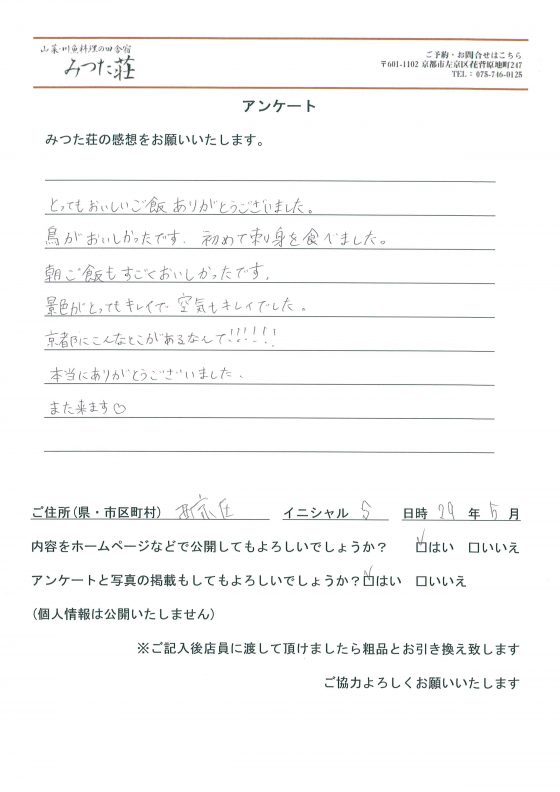 山菜・川魚料理の田舎宿
みつた荘
ご予約・お問合せはこちら
〒601-1102 京都市左京区花背原地町247
TEL：075-746-0125
アンケート
みつた荘の感想をお願いいたします。
とってもおいしいご飯ありがとうございました。
鳥がおいしかったです. 初めて刺身を食べました。
朝ご飯もすごくおいしかったです.
景色がとってもキレイで 空気もキレイでした。
京都にこんなとこがあるなんて!!!!!!
本当にありがとうございました.
また来ます♡
ご住所(県・市区町村) 西京区 イニシャル S 日時 29 年 5 月
内容をホームページなどで公開してもよろしいでしょうか？ ☑はい □いいえ
アンケートと写真の掲載もしてもよろしいでしょうか？☑はい □いいえ
(個人情報は公開いたしません)
※ご記入後店員に渡して頂けましたら粗品とお引き換え致します
ご協力よろしくお願いいたします